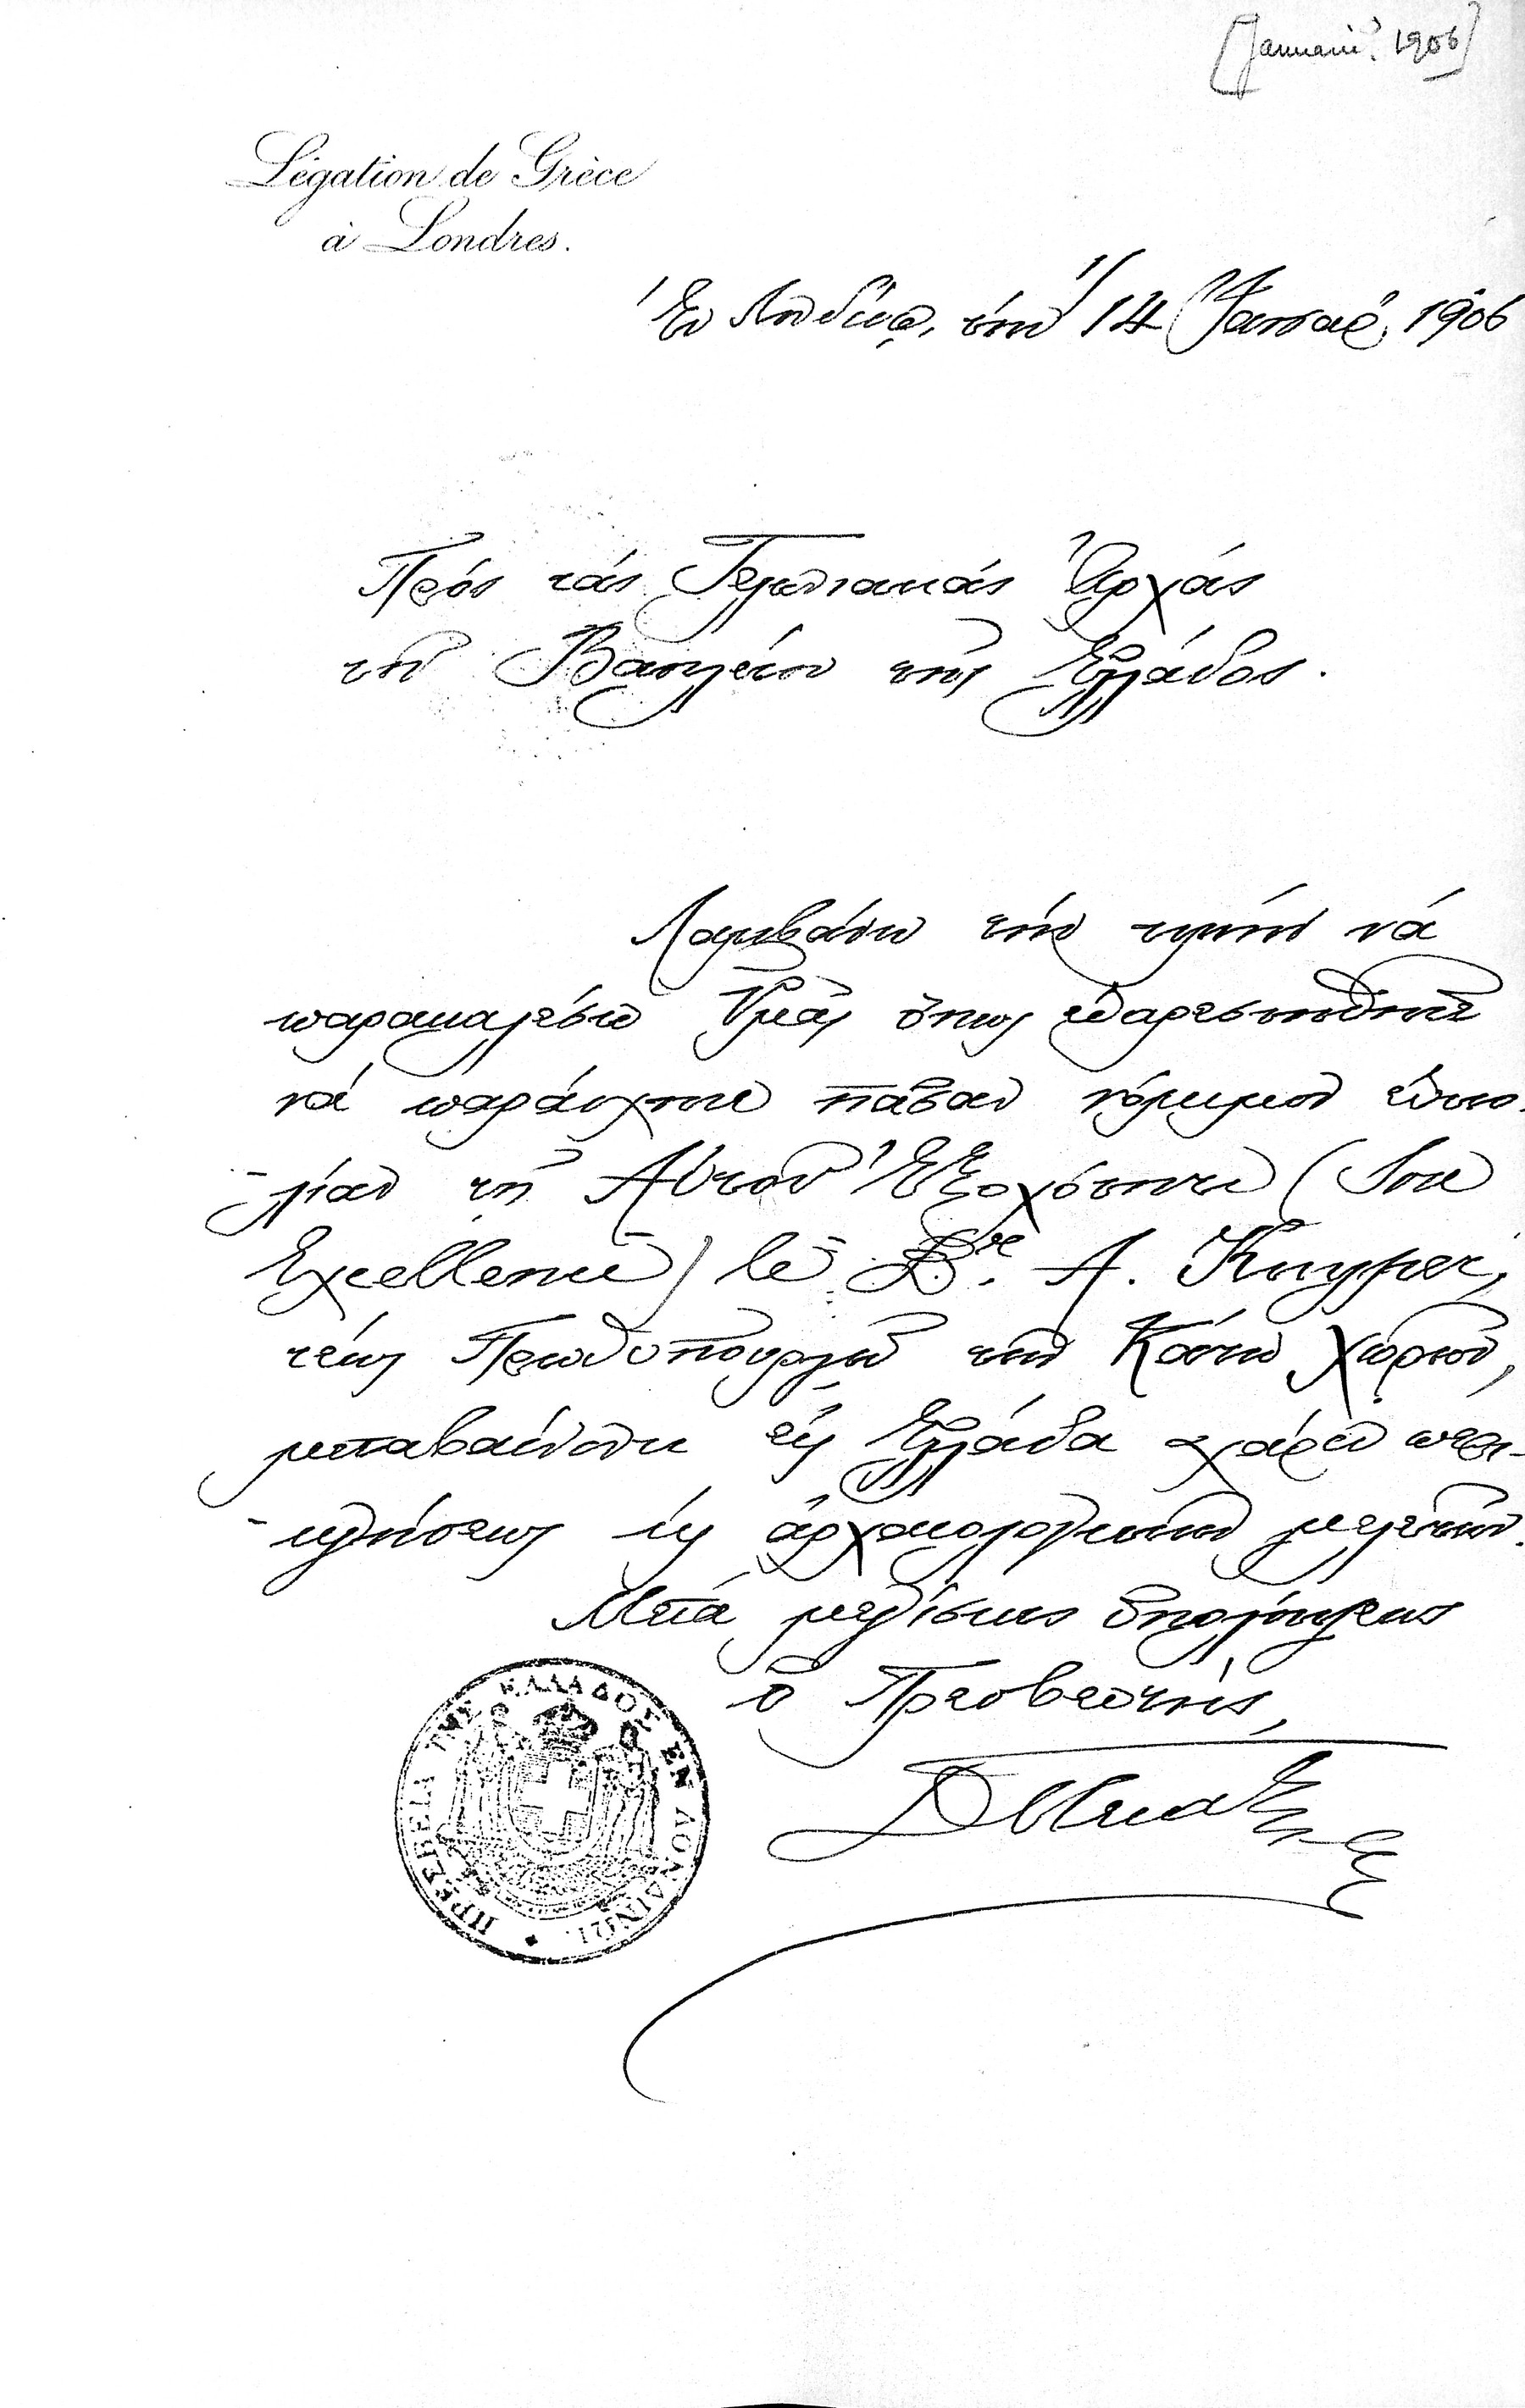 [Januari? 1906]
Légation de Grèce
à Londres.
Ἐν Λονδίνῳ, τὴν 1/14 Ἰανουαρ. 1906
Πρὸς τὰς Τελωνιακὰς Ἀρχὰς
τοῦ Βασιλείου τῆς Ἑλλάδος.
Λαμβάνω τὴν τιμὴν νὰ
παρακαλέσω Ὑμᾶς ὅπως εὐαρεστηθῆτε
νὰ παράσχητε πᾶσαν νόμιμον εὐκο-
-λίαν τῇ Αὐτοῦ Ἐξοχότητι (Son
Excellence) le Dr. A. Kuyper,
τέως Πρωθυπουργῷ τῶν Κάτω Χωρῶν,
μεταβαίνοντι εἰς Ἑλλάδα χάριν περι-
-ηγήσεως καὶ ἀρχαιολογικῶν μελετῶν.
Μετὰ μεγίστης ὑπολήψεως
ὁ Πρεσβευτής,
ΠΡΕΣΒΕΙΑ ΤΗΣ ΕΛΛΑΔΟΣ ΕΝ ΛΟΝΔΙΝΩΙ